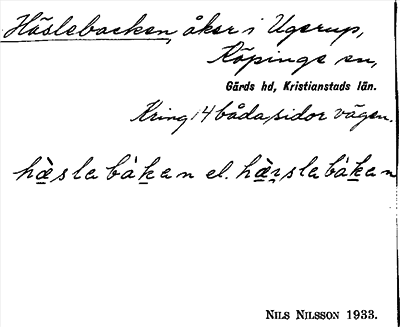 Häslebacken, åker i Ugerup,
Köpinge sn,
Gärds hd, Kristianstads län.
Kring i 4 båda sidor vägen.
hæ̀slabàkan el. hæ̀r̥slabàkan
NILS NILSSON 1933.